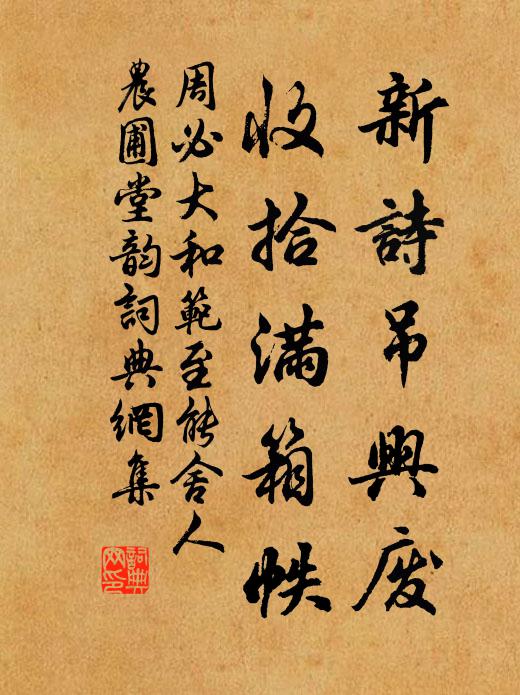 新詩吊興废
收拾满箱帙
周必大和範至能舍人
農圃堂韵詞典網集
詞典網印